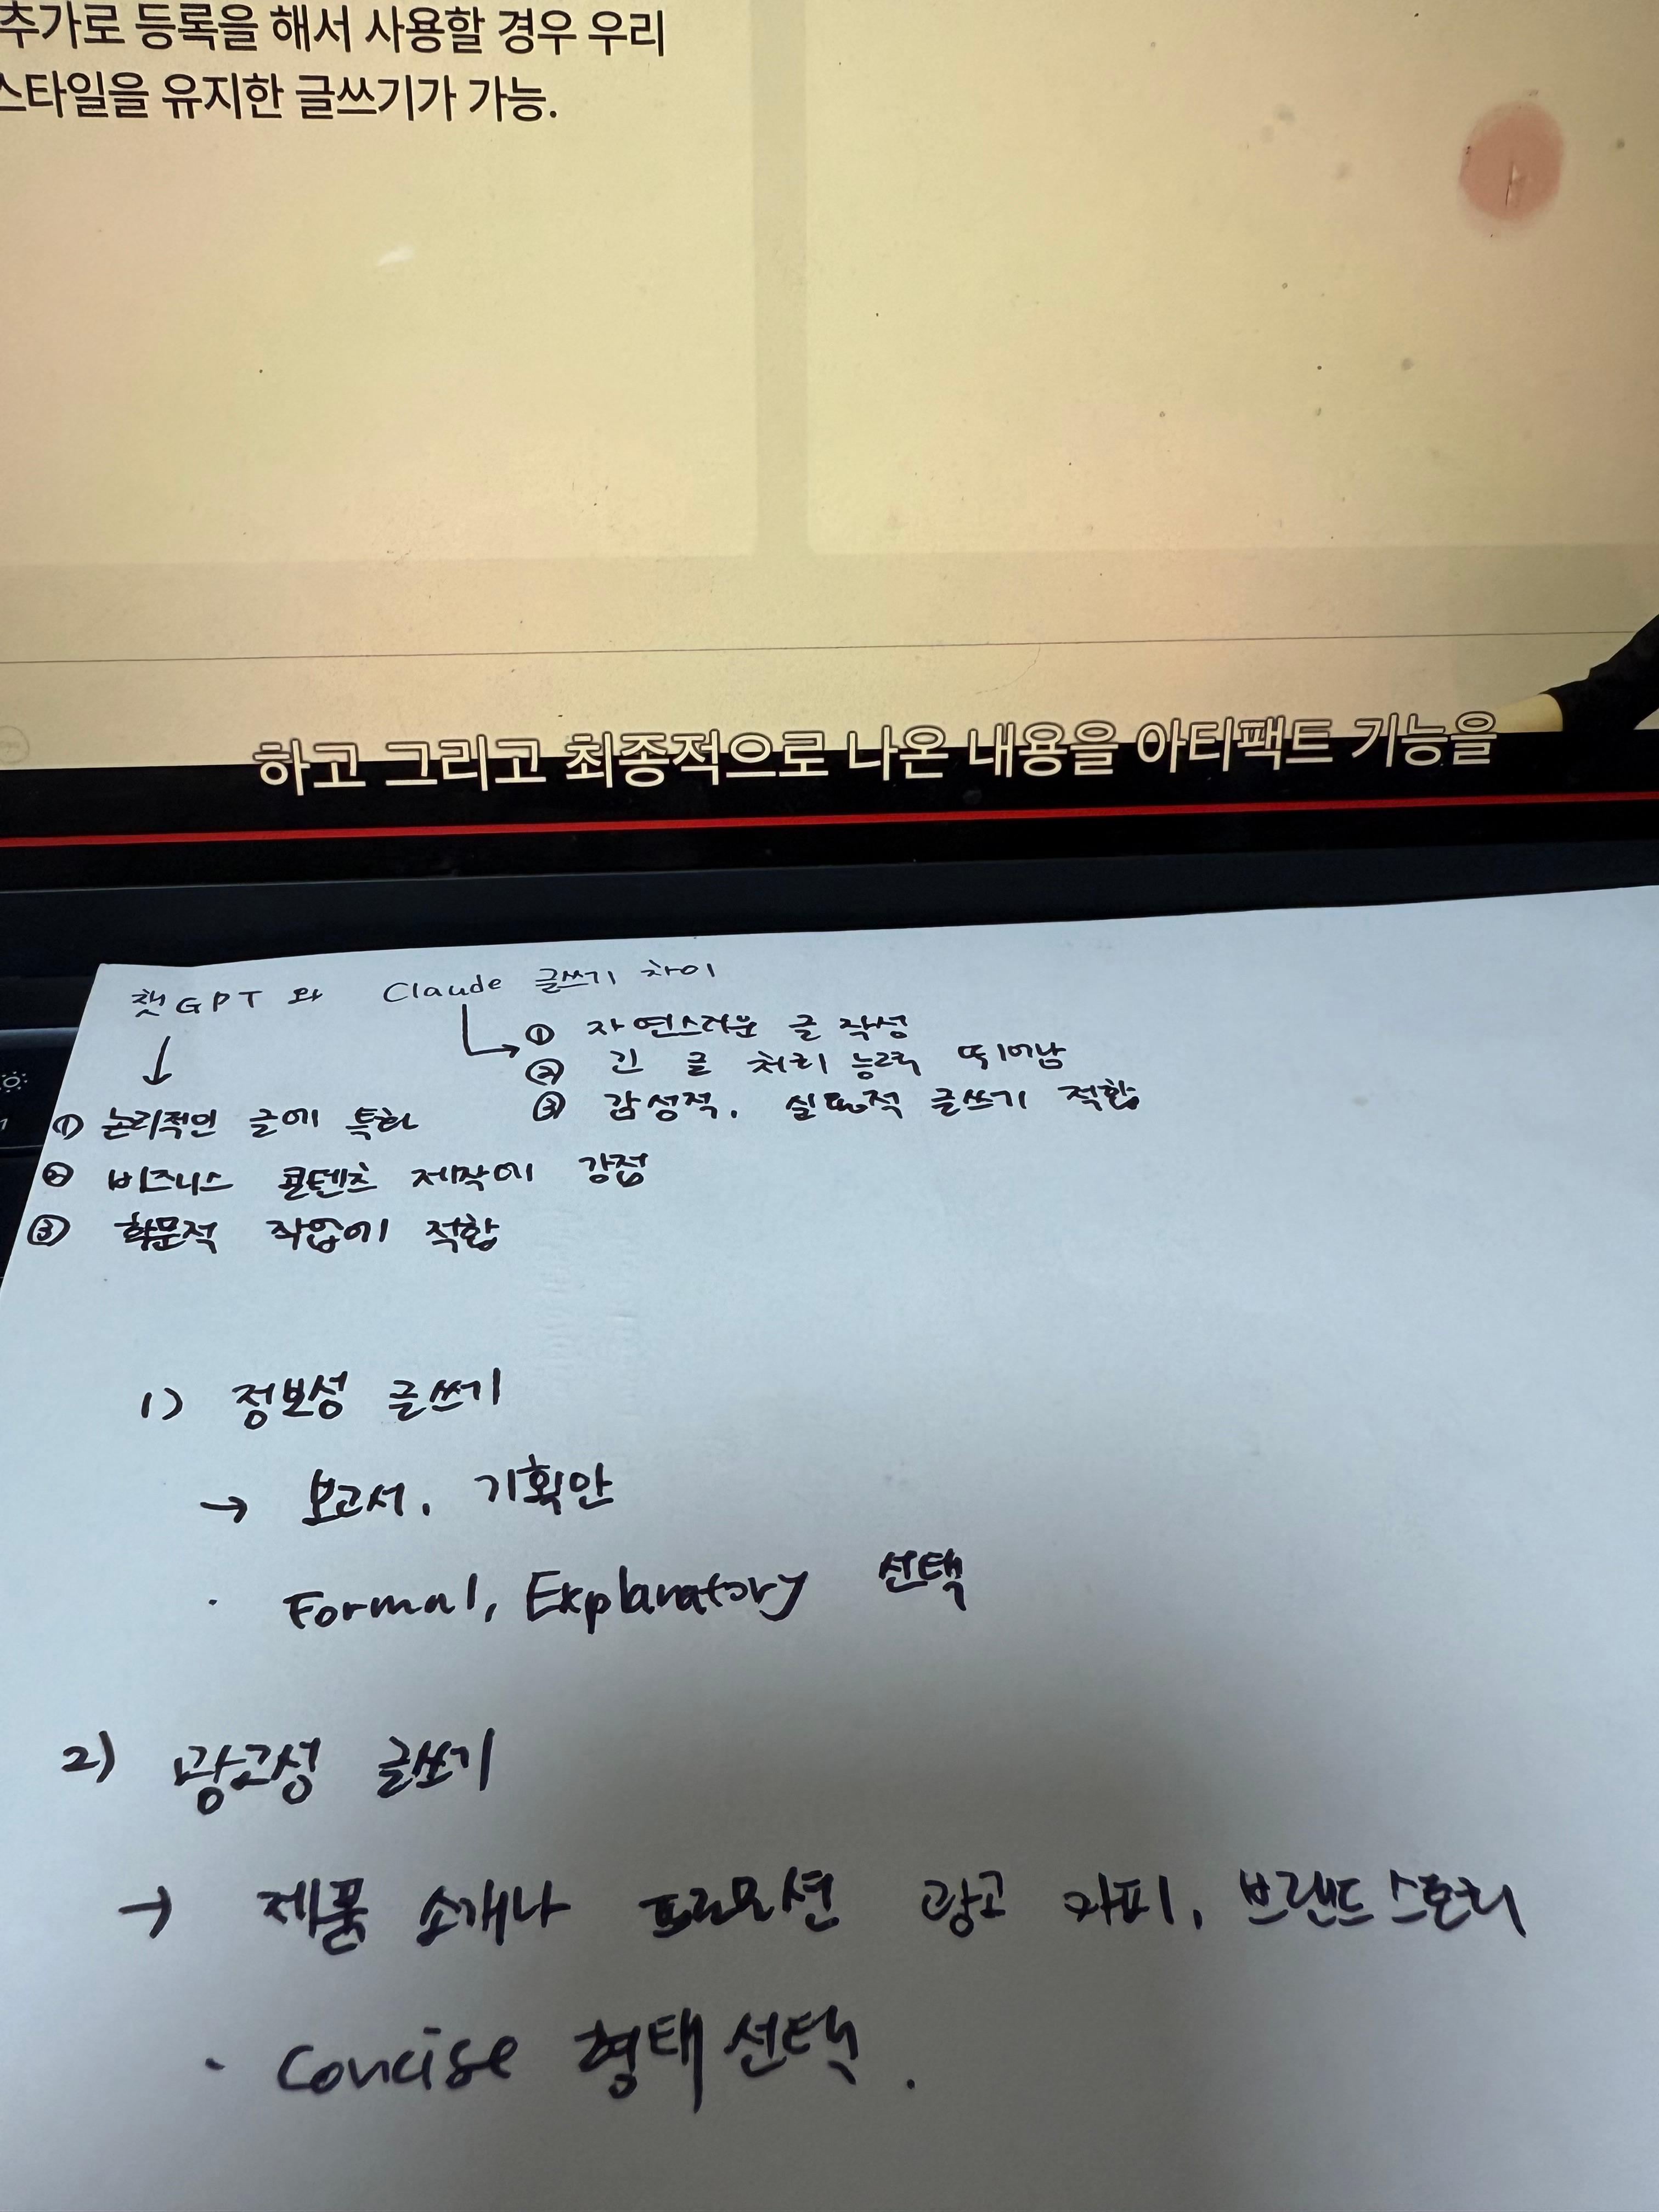 추가로 등록을 해서 사용할 경우 우리
스타일을 유지한 글쓰기가 가능.
하고 그리고 최종적으로 나온 내용을 아티팩트 기능을
챗GPT 와 Claude 글쓰기 차이
① 자연스러운 글 작성
② 긴 글 처리 능력 뛰어남
③ 감성적, 실용적 글쓰기 적합
① 논리적인 글에 특화
② 비즈니스 콘텐츠 제작에 강점
③ 학문적 작업에 적합
1) 정보성 글쓰기
→ 보고서, 기획안
· Formal, Explanatory 선택
2) 광고성 글쓰기
→ 제품 소개나 프로모션 광고 카피, 브랜드 스토리
· Concise 형태 선택.